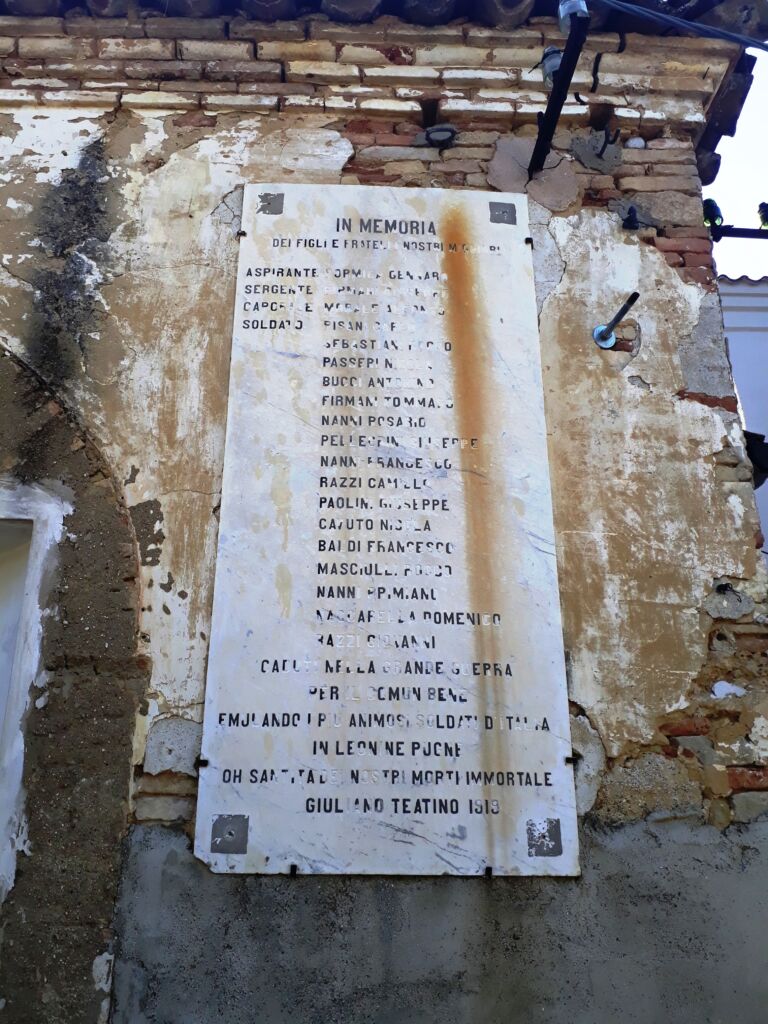 IN MEMORIA
DEI FIGLI E FRATELLI NOSTRI
ASPIRANTE FORMICA GENNARO
SERGENTE FIRMANI
CAPORALE
SOLDATO PISANI
SEBASTIANI ROCCO
PASSERI
BUCCI ANTONINO
FIRMANI TOMMASO
NANNI ROSARIO
PELLEGRINI GIUSEPPE
NANNI FRANCESCO
RAZZI CAMILLO
PAOLINI GIUSEPPE
CAYUTO NICOLA
BALDI FRANCESCO
MASCIULLI ROCCO
NANNI PRIMIANO
DOMENICO
RAZZI GIOVANNI
CADUTI NELLA GRANDE GUERRA
PER IL COMUN BENE
EMULANDO I PIÙ ANIMOSI SOLDATI D'ITALIA
IN LEONINE PUGNE
OH SANTITÀ DEI NOSTRI MORTI IMMORTALE
GIULIANO TEATINO 1919